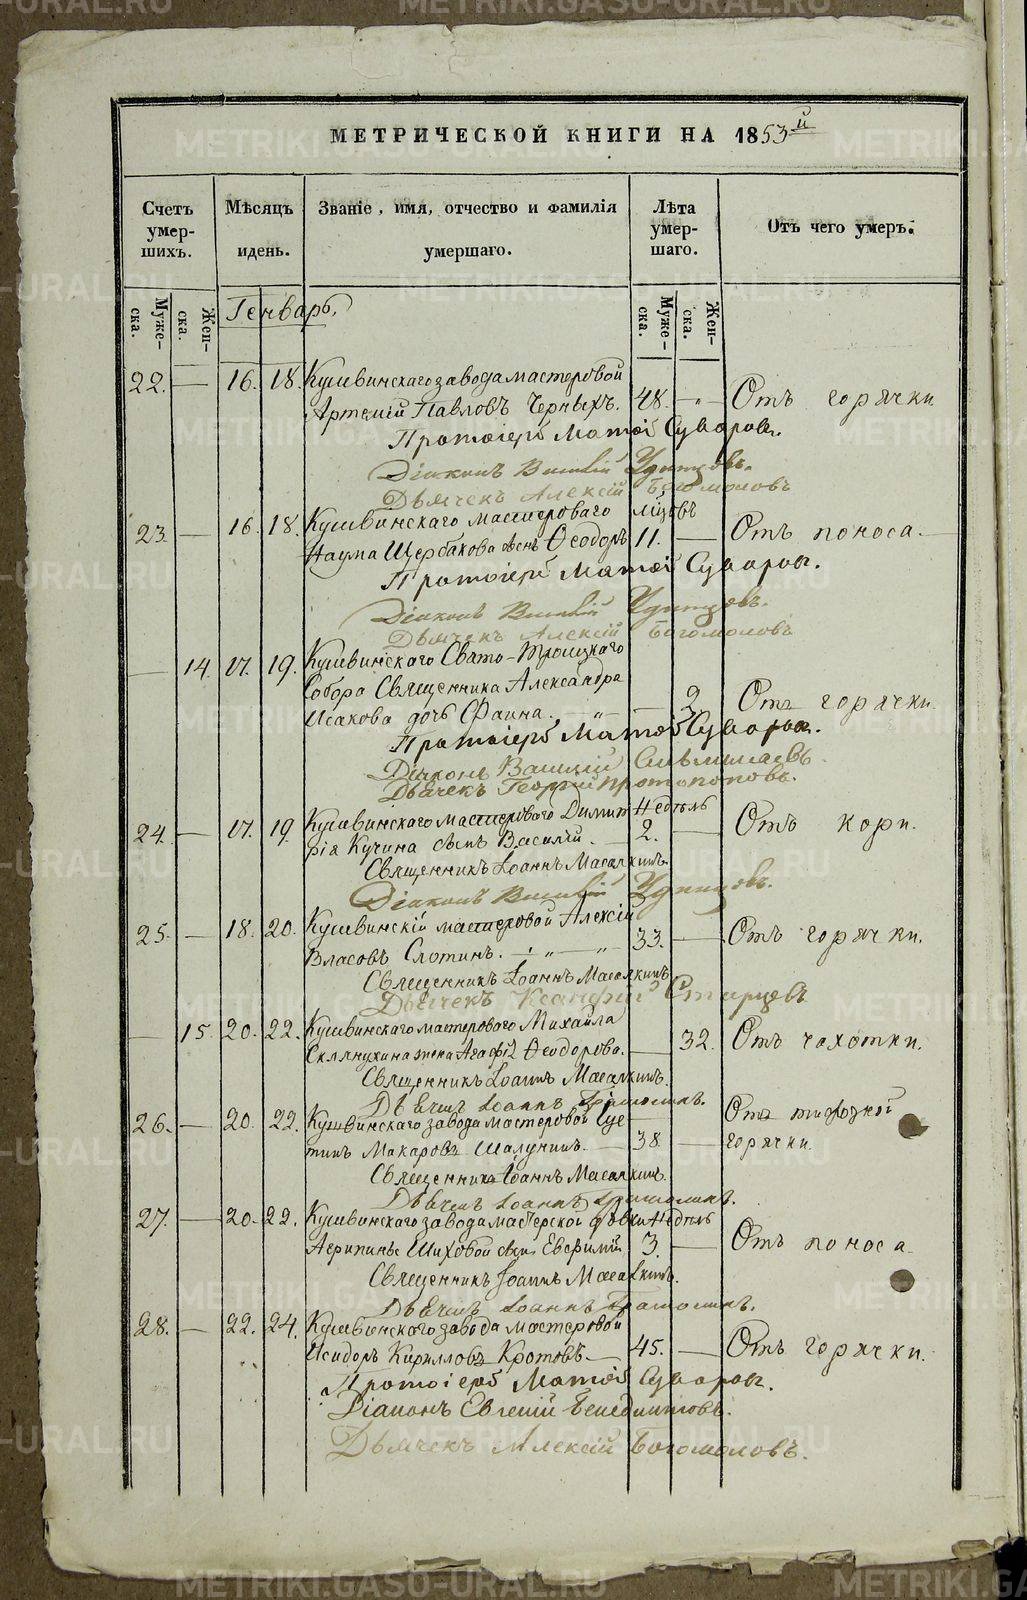 МЕТРИЧЕСКОЙ КНИГИ НА 1853й
Счетъ умер-шихъ.
Мѣсяцъ идень.
Званіе, имя, отчество и фамилія умершаго.
Лѣта умер-шаго.
Отъ чего умеръ.
Муже-ска.
Жен-ска.
Муже-ска.
Жен-ска.
Генварь.
22. — 16. 18. Кушвинскаго завода мастеровой
Артемій Павловъ Черныхъ. 48. — „ — Отъ горячки
Протоіерей Матѳей Суворовъ.
Діаконъ Василій Удинцовъ.
Дьячекъ Алексій Богомоловъ
23. — 16. 18. Кушвинскаго мастероваго
Наума Щербакова сынъ Ѳеодоръ 11. — Отъ поноса. —
Протоіерей Матѳей Суворовъ.
Діаконъ Василій Удинцовъ.
Дьячекъ Алексій Богомоловъ
— 14. 17. 19. Кушвинскаго Свято-Троицкаго
Собора Священника Александра
Исакова дочь Фаина. — „ — 2 Отъ горячки.
Протоіерей Матѳей Суворовъ.
Діаконъ Василій
Дьячекъ Георгій Протопоповъ.
24. — 17. 19. Кушвинскаго мастероваго Димит Недѣль
рія Кучина сынъ Василій. — 2. — Отъ кори.
Священникъ Іоаннъ Масалкинъ.
Діаконъ Василій Удинцовъ.
25. — 18. 20. Кушвинскій мастеровой Алексій
Власовъ Слотинъ. — „ — „ 33. — Отъ горячки.
Священникъ Іоаннъ Масалкинъ
Дьячекъ Старцевъ
— 15. 20. 22. Кушвинскаго мастероваго Михаила
жена Агафія Ѳеодорова. — 32. Отъ чахотки.
Священникъ Іоаннъ Масалкинъ.
Дьячекъ Іоаннъ
26. — 20. 22. Кушвинскаго завода мастеровой Іус
тинъ Макаровъ Шалунинъ. — 38 — Отъ тифозной
горячки.
Священникъ Іоаннъ Масалкинъ.
Дьячекъ Іоаннъ
27. — 20. 22. Кушвинскаго завода мастерской дѣвки Недѣль
Агрипины Шиховой сынъ Евфимій 3. — Отъ поноса.
Священникъ Іоаннъ Масалкинъ.
Дьячекъ Іоаннъ
28. — 22. 24. Кушвинскаго завода мастеровой
Исидоръ Кирилловъ Кротовъ. — 45. — Отъ горячки.
Протоіерей Матѳей Суворовъ.
Діаконъ Евгеній Бенедиктовъ.
Дьячекъ Алексій Богомоловъ.
METRIKI.GASO-URAL.RU